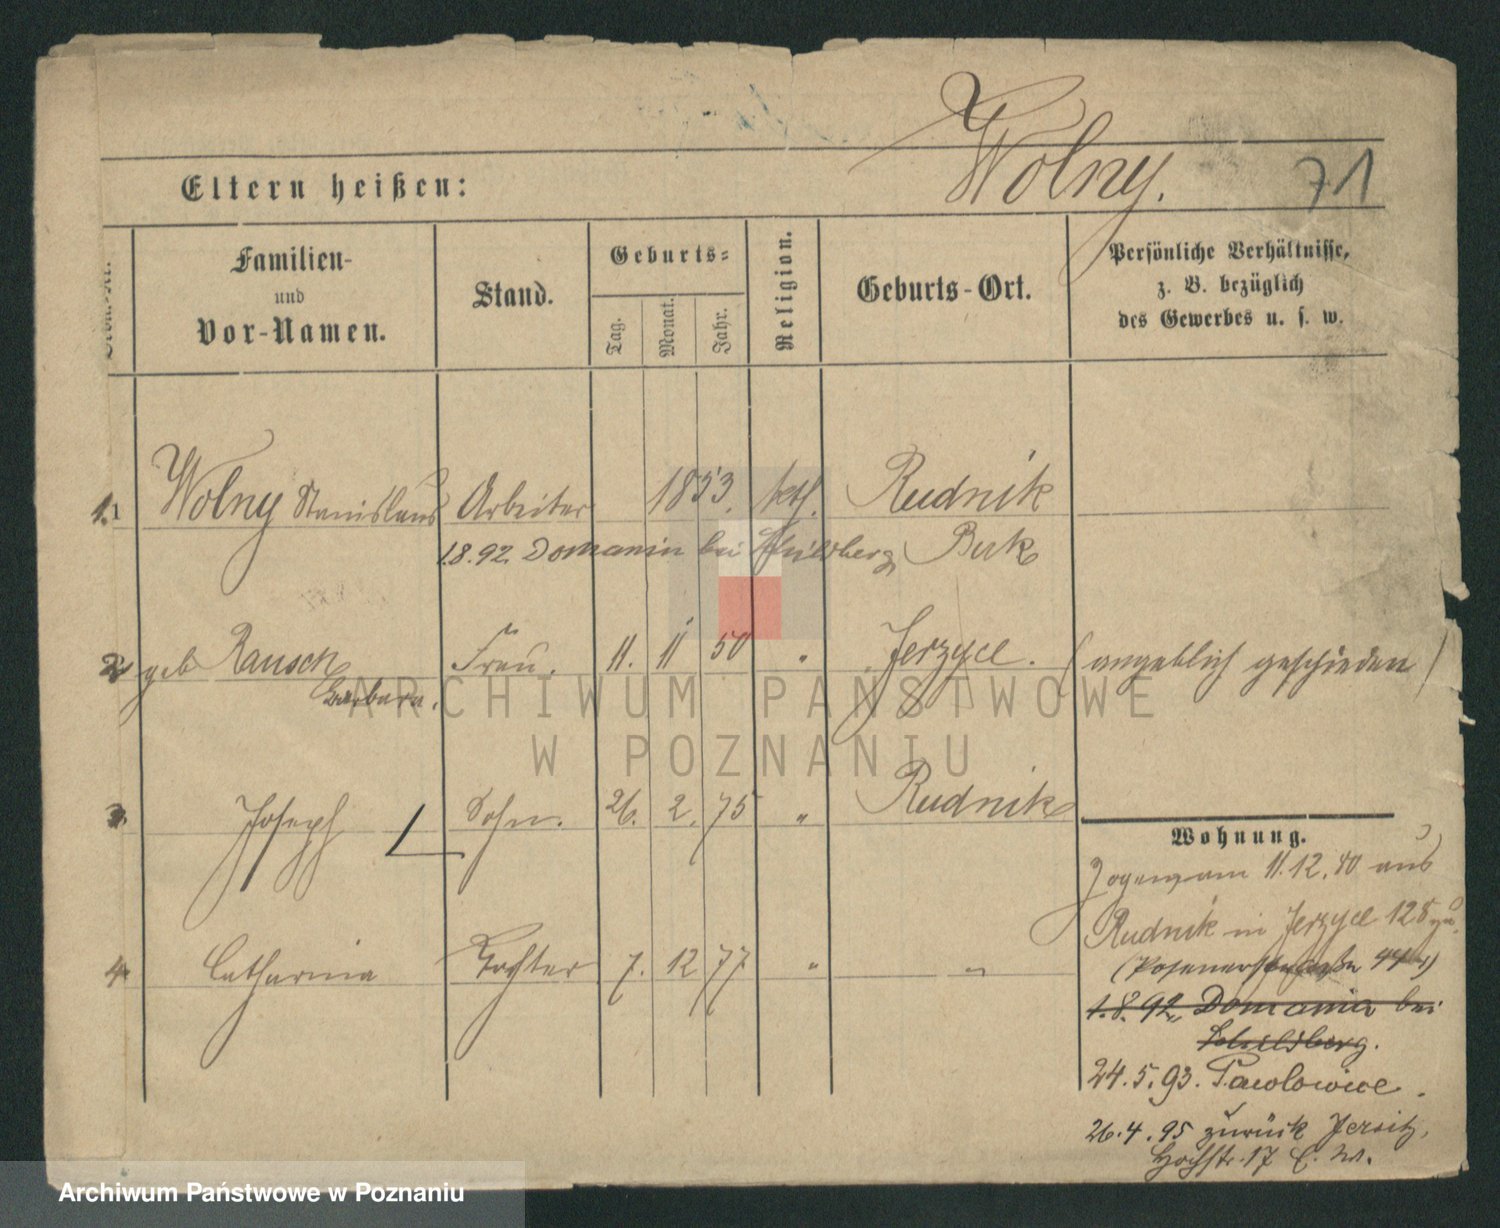 Wolny.
71
Eltern heißen:
Familien-
und
Vor-Namen.
Stand.
Geburts-
Tag.
Monat.
Jahr.
Religion.
Geburts-Ort.
Persönliche Verhältnisse,
z. B. bezüglich
des Gewerbes u. s. w.
1. Wolny Stanislaus Arbeiter 1853. kth. Rudnik
1.8.92. Domanin bei Schildberg
Buk
2 geb Rausch Frau. 11. 11 50 " Jerzyce. (angeblich geschieden)
Barbara.
3 Joseph Sohn. 26. 2. 75 " Rudnik
4 Catharina Tochter 7. 12 77 " "
Wohnung.
Zogen am 11.12.80 aus
Rudnik in Jerzyce 128 zu.
(Posenerstraße 44)
1.8.92. Domanin bei
Schildberg.
24.5.93. Pawlowice.
26.4.95 zurück Jersitz,
Hochstr. 17
ARCHIWUM PAŃSTWOWE
W POZNANIU
Archiwum Państwowe w Poznaniu